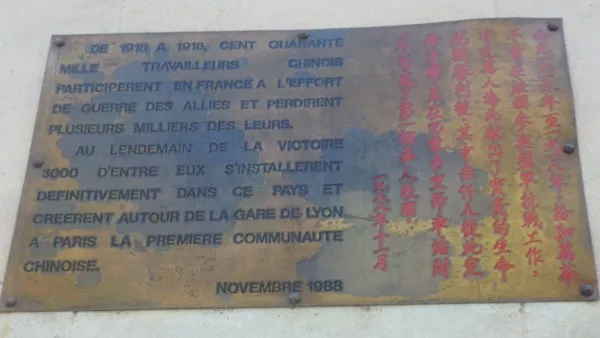 DE 1916 A 1918, CENT QUARANTE
MILLE TRAVAILLEURS CHINOIS
PARTICIPERENT EN FRANCE A L'EFFORT
DE GUERRE DES ALLIES ET PERDIRENT
PLUSIEURS MILLIERS DES LEURS.
AU LENDEMAIN DE LA VICTOIRE
3000 D'ENTRE EUX S'INSTALLERENT
DEFINITIVEMENT DANS CE PAYS ET
CREERENT AUTOUR DE LA GARE DE LYON
A PARIS LA PREMIERE COMMUNAUTE
CHINOISE.
NOVEMBRE 1988
年至一九一八年
工 在法國參與盟軍抗戰工作
人為此獻出了寶貴的生命
勝利後 其中 仟人從此定
巴黎 里昂車站
第一個華人社團
一九八八年十一月